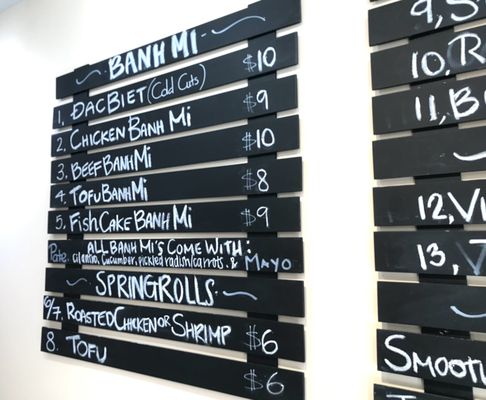 BANH MI
1. ĐAC BIET (Cold Cuts) $10
2. CHICKEN BANH MI $9
3. BEEF BANH MI $10
4. TOFU BANH MI $8
5. FISH CAKE BANH MI $9
ALL BANH MI'S COME WITH:
Pate, cilantro, cucumber, pickled radish/carrots, & MAYO
SPRINGROLLS
6/7. ROASTED CHICKEN OR SHRIMP $6
8. TOFU $6
9,
10,
11,
12,
13,